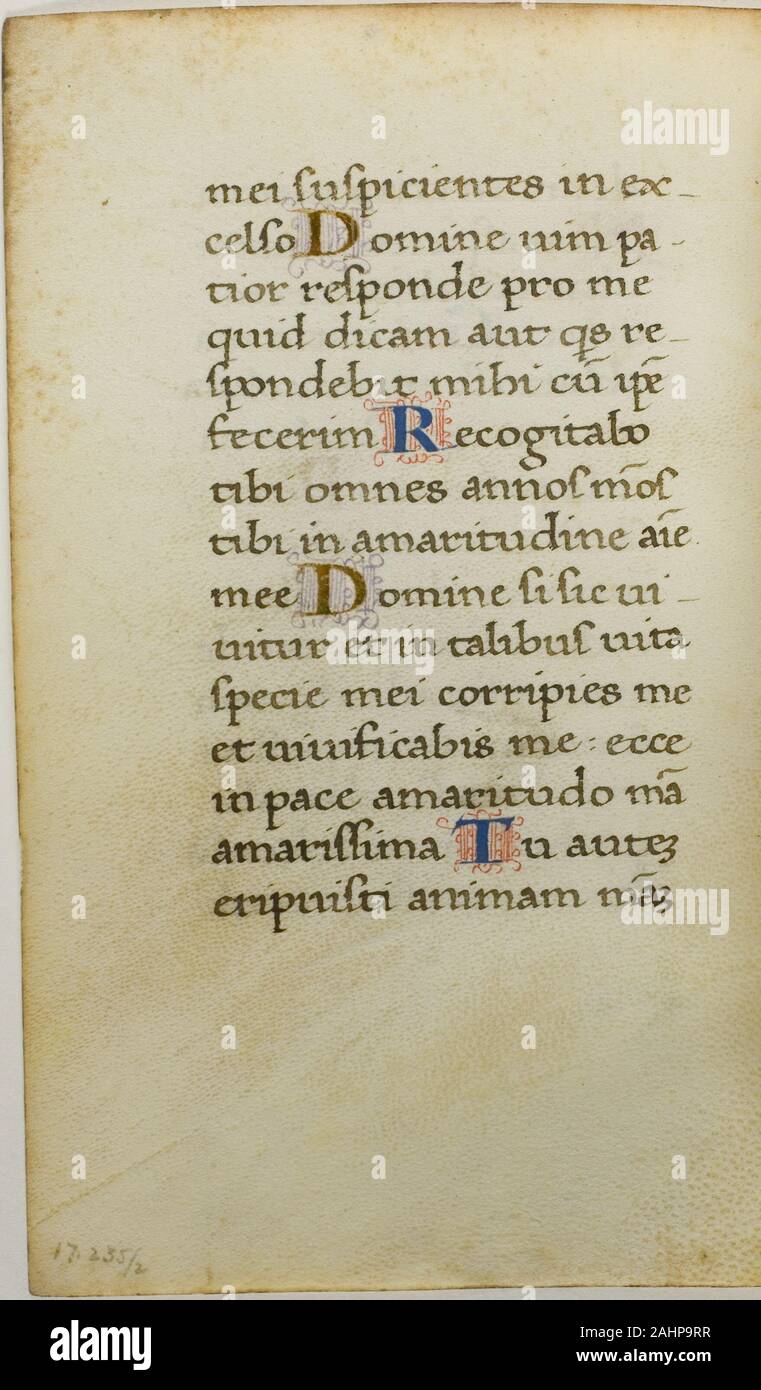 mei suspicientes in ex-
celso Domine uim pa-
tior responde pro me
quid dicam aut qs re-
spondebit mihi cū ipē
fecerim Recogitabo
tibi omnes annos mōs
tibi in amaritudine aīe
mee Domine si sic ui-
uitur et in talibus uita
specie mei corripies me
et uiuificabis me : ecce
in pace amaritudo mā
amarissima Tu auteʒ
eripuisti animam māʒ
17.235/2
alamy
Image ID: 2AHP9RR
www.alamy.com